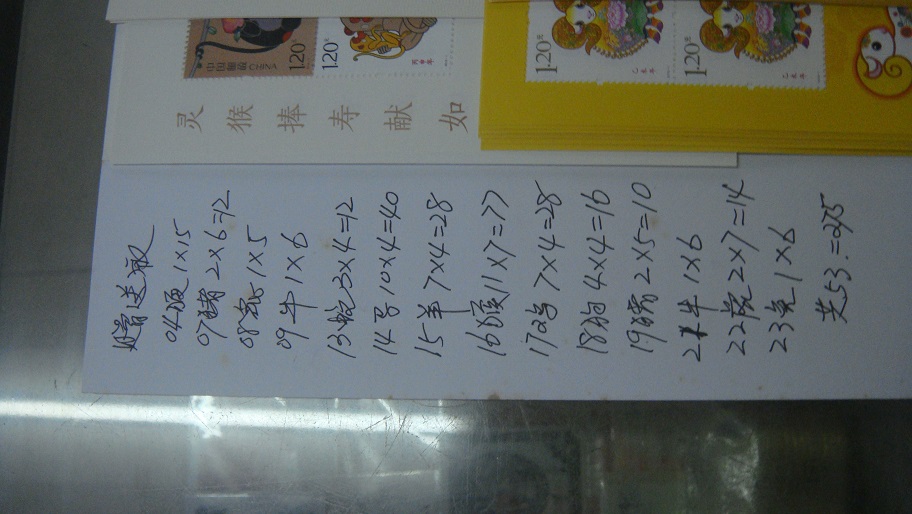 1.20元
中国邮政 CHINA
1.20元
丙申年
1.20元
乙未年
1.20元
乙未年
灵猴捧寿献如
04猴1×15
07猪2×6=12
08鼠1×5
09牛1×6
13蛇3×4=12
14马10×4=40
15羊7×4=28
16猴11×7=77
17鸡7×4=28
18狗4×4=16
19猪2×5=10
21牛1×6
22虎2×7=14
23兔1×6
共53.=275